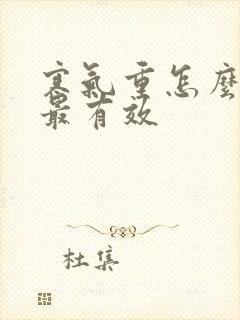 寒氣重怎麼
最有效
杜集